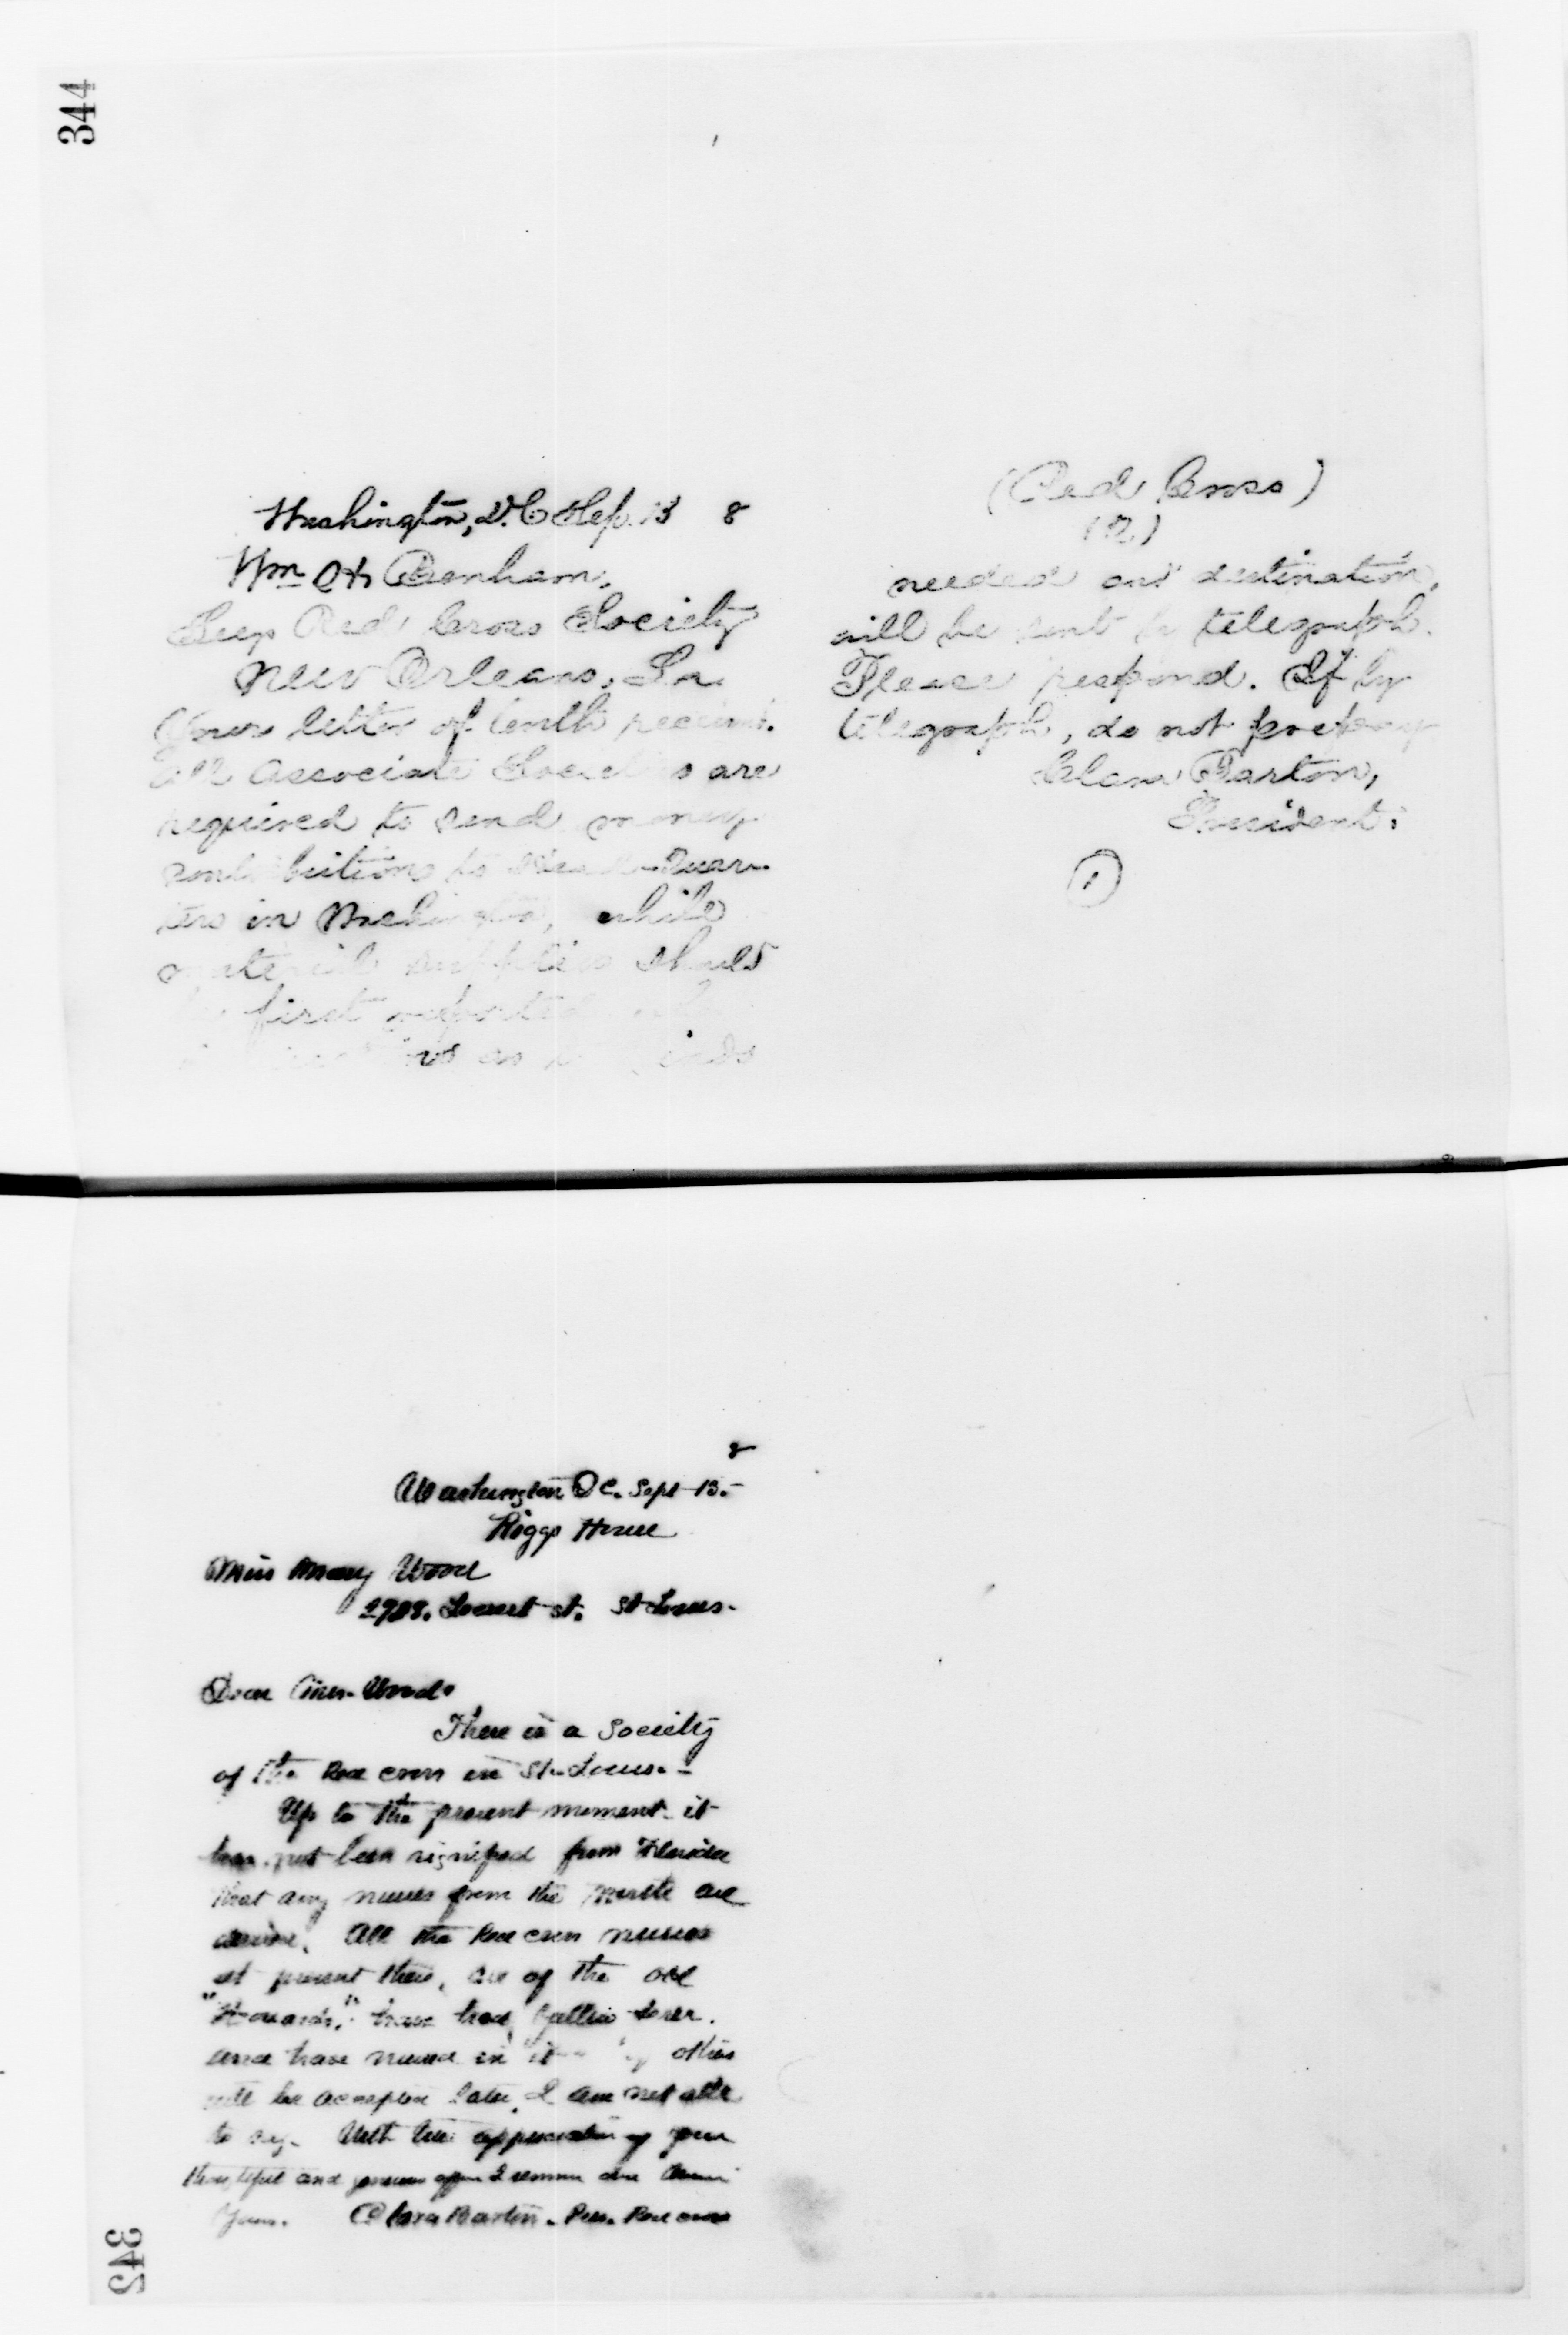 344
Washington, D.C. Sep. 13 8
Wm H. Benham,
Red Cross Society
New Orleans, La.
Your letter of tenth received.
All Associate Societies are
required to send money
contributions to Head-Quar-
ters in Washington, while
material supplies should
be first reported
as to kinds
(Red Cross)
(2)
needed and destination,
will be sent by telegraph.
Please respond. If by
telegraph, do not prepay
Clara Barton,
President.
1
8
Washington DC. Sept 13.-
Riggs House
Miss Mary Wood
Locust st. St Louis-
Dear Miss Wood.
There is a Society
of the Red Cross in St. Louis.-
Up to the present moment it
has not been signified from Florida
that any nurses from the North are
desired. All the Red Cross nurses
at present there, are of the old
"Howards," have had yellow fever.
and have nursed in it
will be accepted later, I am not able
to say. With true appreciation of your
and generous offer I remain dear
Yours. Clara Barton. Pres. Red Cross
342